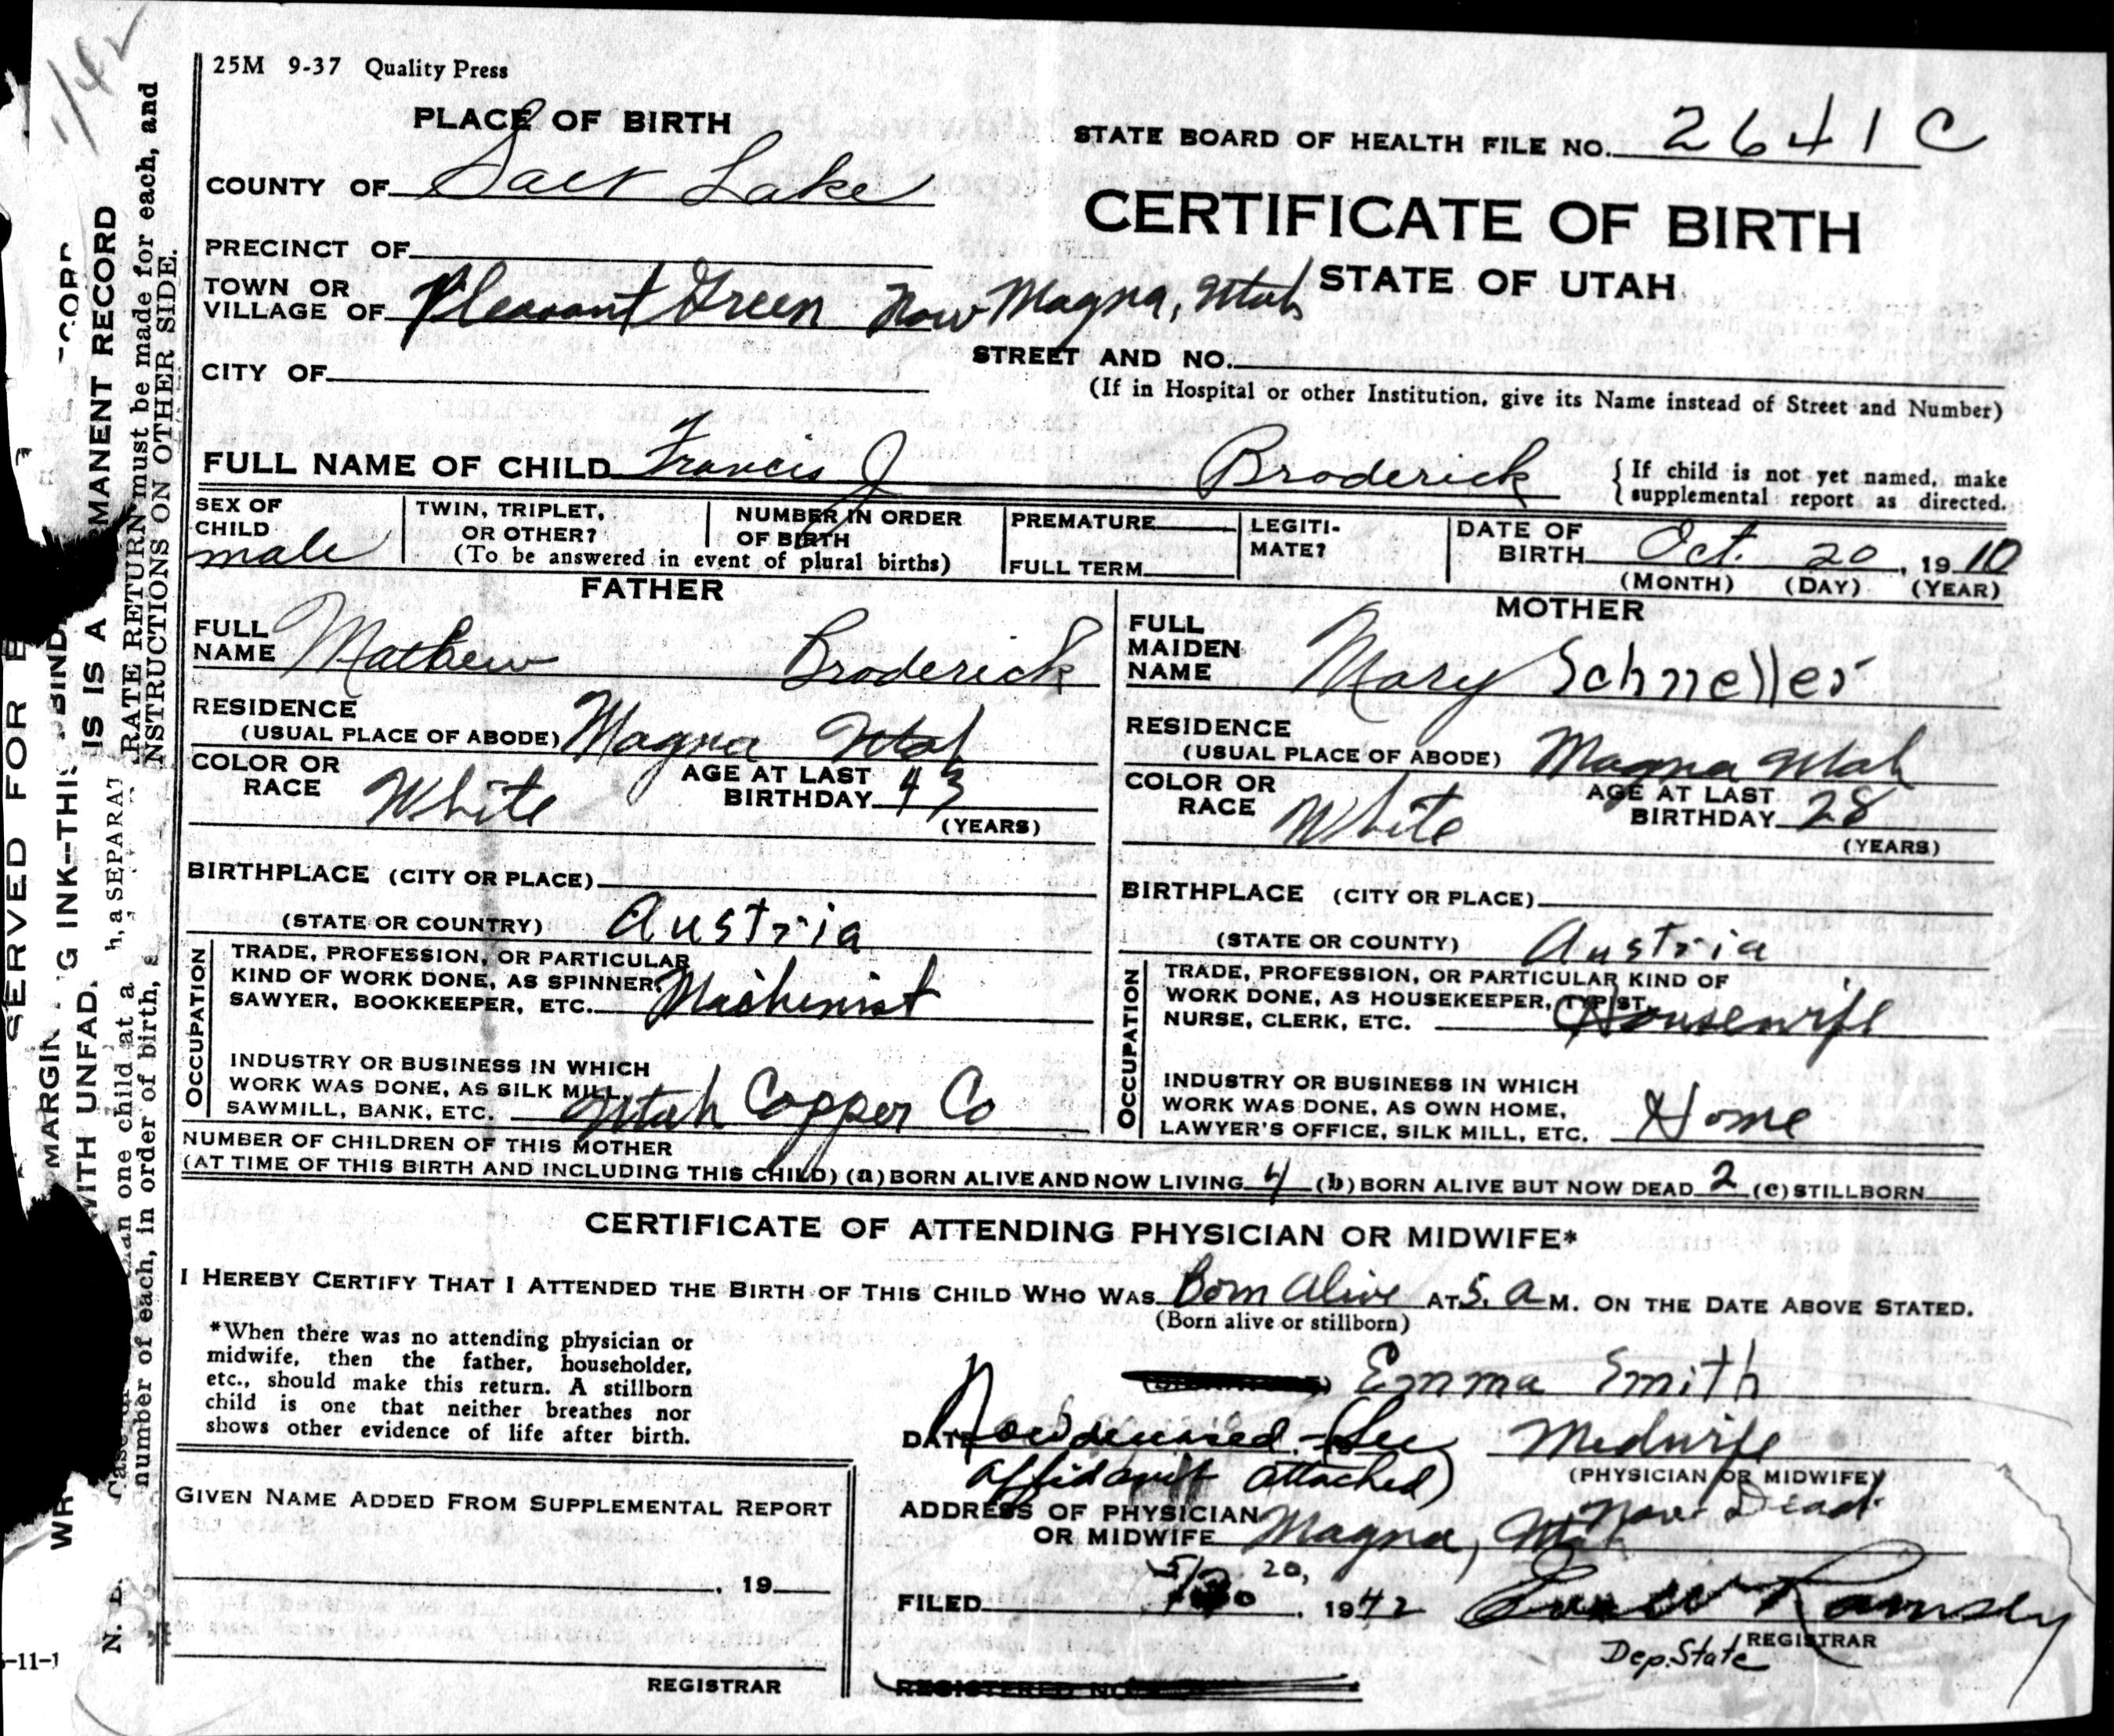 1/42
25M 9-37 Quality Press
PLACE OF BIRTH
STATE BOARD OF HEALTH FILE NO. 2641C
COUNTY OF Salt Lake
CERTIFICATE OF BIRTH
PRECINCT OF
STATE OF UTAH
TOWN OR
VILLAGE OF Pleasant Green Now Magna, Utah
STREET AND NO.
CITY OF
(If in Hospital or other Institution, give its Name instead of Street and Number)
FULL NAME OF CHILD Francis J Broderick
{ If child is not yet named, make
supplemental report as directed.
SEX OF CHILD male
TWIN, TRIPLET, OR OTHER?
NUMBER IN ORDER OF BIRTH
(To be answered in event of plural births)
PREMATURE
FULL TERM
LEGITI-
MATE?
DATE OF
BIRTH Oct. 20, 1910
(MONTH) (DAY) (YEAR)
FATHER
FULL
NAME Mathew Broderick
RESIDENCE
(USUAL PLACE OF ABODE) Magna Utah
COLOR OR
RACE White
AGE AT LAST
BIRTHDAY 43
(YEARS)
BIRTHPLACE (CITY OR PLACE)
(STATE OR COUNTRY) Austria
OCCUPATION
TRADE, PROFESSION, OR PARTICULAR
KIND OF WORK DONE, AS SPINNER,
SAWYER, BOOKKEEPER, ETC. Mashenist
INDUSTRY OR BUSINESS IN WHICH
WORK WAS DONE, AS SILK MILL,
SAWMILL, BANK, ETC. Utah Copper Co
MOTHER
FULL
MAIDEN
NAME Mary Schneller
RESIDENCE
(USUAL PLACE OF ABODE) Magna Utah
COLOR OR
RACE White
AGE AT LAST
BIRTHDAY 28
(YEARS)
BIRTHPLACE (CITY OR PLACE)
(STATE OR COUNTY) Austria
OCCUPATION
TRADE, PROFESSION, OR PARTICULAR KIND OF
WORK DONE, AS HOUSEKEEPER, TYPIST,
NURSE, CLERK, ETC. Housewife
INDUSTRY OR BUSINESS IN WHICH
WORK WAS DONE, AS OWN HOME,
LAWYER'S OFFICE, SILK MILL, ETC. Home
NUMBER OF CHILDREN OF THIS MOTHER
(AT TIME OF THIS BIRTH AND INCLUDING THIS CHILD) (a) BORN ALIVE AND NOW LIVING 4 (b) BORN ALIVE BUT NOW DEAD 2 (c) STILLBORN
CERTIFICATE OF ATTENDING PHYSICIAN OR MIDWIFE*
I HEREBY CERTIFY THAT I ATTENDED THE BIRTH OF THIS CHILD WHO WAS Born Alive AT 5. a M. ON THE DATE ABOVE STATED.
(Born alive or stillborn)
*When there was no attending physician or
midwife, then the father, householder,
etc., should make this return. A stillborn
child is one that neither breathes nor
shows other evidence of life after birth.
Emma Smith
DATE Now deceased. (See Midwife
affidavit attached)
(PHYSICIAN OR MIDWIFE)
Now Dead
ADDRESS OF PHYSICIAN
OR MIDWIFE Magna, Utah
5/20,
FILED 1942 Ramsey
Dep. State REGISTRAR
REGISTERED NO.
GIVEN NAME ADDED FROM SUPPLEMENTAL REPORT
, 19
REGISTRAR
SERVED FOR
MARGIN BINDING
WITH UNFADING INK--THIS IS A PERMANENT RECORD
than one child at a birth, a SEPARATE RETURN must be made for each, and
number of each, in order of birth, INSTRUCTIONS ON OTHER SIDE.
N. B.
-11-1